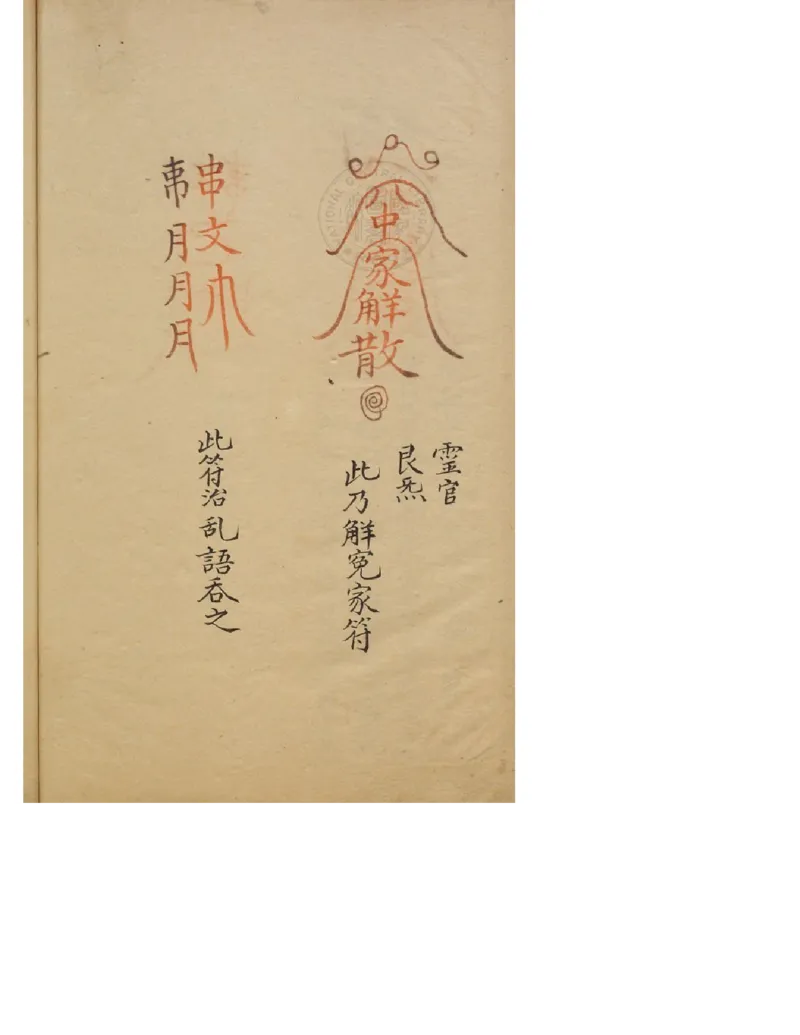 八中家解散
靈官
艮炁
此乃解冤家符
串文
月月月
此符治乱語吞之